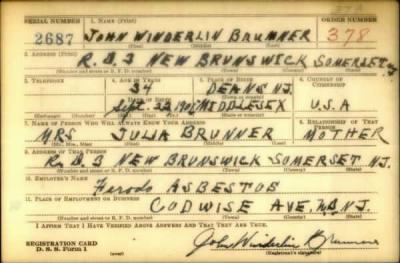 SERIAL NUMBER 1. NAME (Print) ORDER NUMBER
2687 JOHN WINDERLIN BRUNNER 378
(First) (Middle) (Last)
2. ADDRESS (Print)
R.D.3 NEW BRUNSWICK SOMERSET NJ
(Number and street or R. F. D. number) (Town) (County) (State)
3. TELEPHONE 4. AGE IN YEARS 5. PLACE OF BIRTH 6. COUNTRY OF CITIZENSHIP
34 DEANS NJ.
DATE OF BIRTH
Sept. 22 MIDDLESEX U.S.A
7. NAME OF PERSON WHO WILL ALWAYS KNOW YOUR ADDRESS 8. RELATIONSHIP OF THAT PERSON
MRS JULIA BRUNNER MOTHER
(Mr., Mrs., Miss) (First) (Middle) (Last)
9. ADDRESS OF THAT PERSON
R.D. 3 NEW BRUNSWICK SOMERSET NJ.
(Number and street or R. F. D. number) (Town) (County) (State)
10. EMPLOYER'S NAME
Ferodo ASBESTOS
11. PLACE OF EMPLOYMENT OR BUSINESS
CODWISE AVE, N.B. N.J.
(Number and street or R. F. D. number) (Town) (County) (State)
I AFFIRM THAT I HAVE VERIFIED ABOVE ANSWERS AND THAT THEY ARE TRUE.
REGISTRATION CARD
D. S. S. Form 1 John Winderlin Brunner
(Registrant's signature)